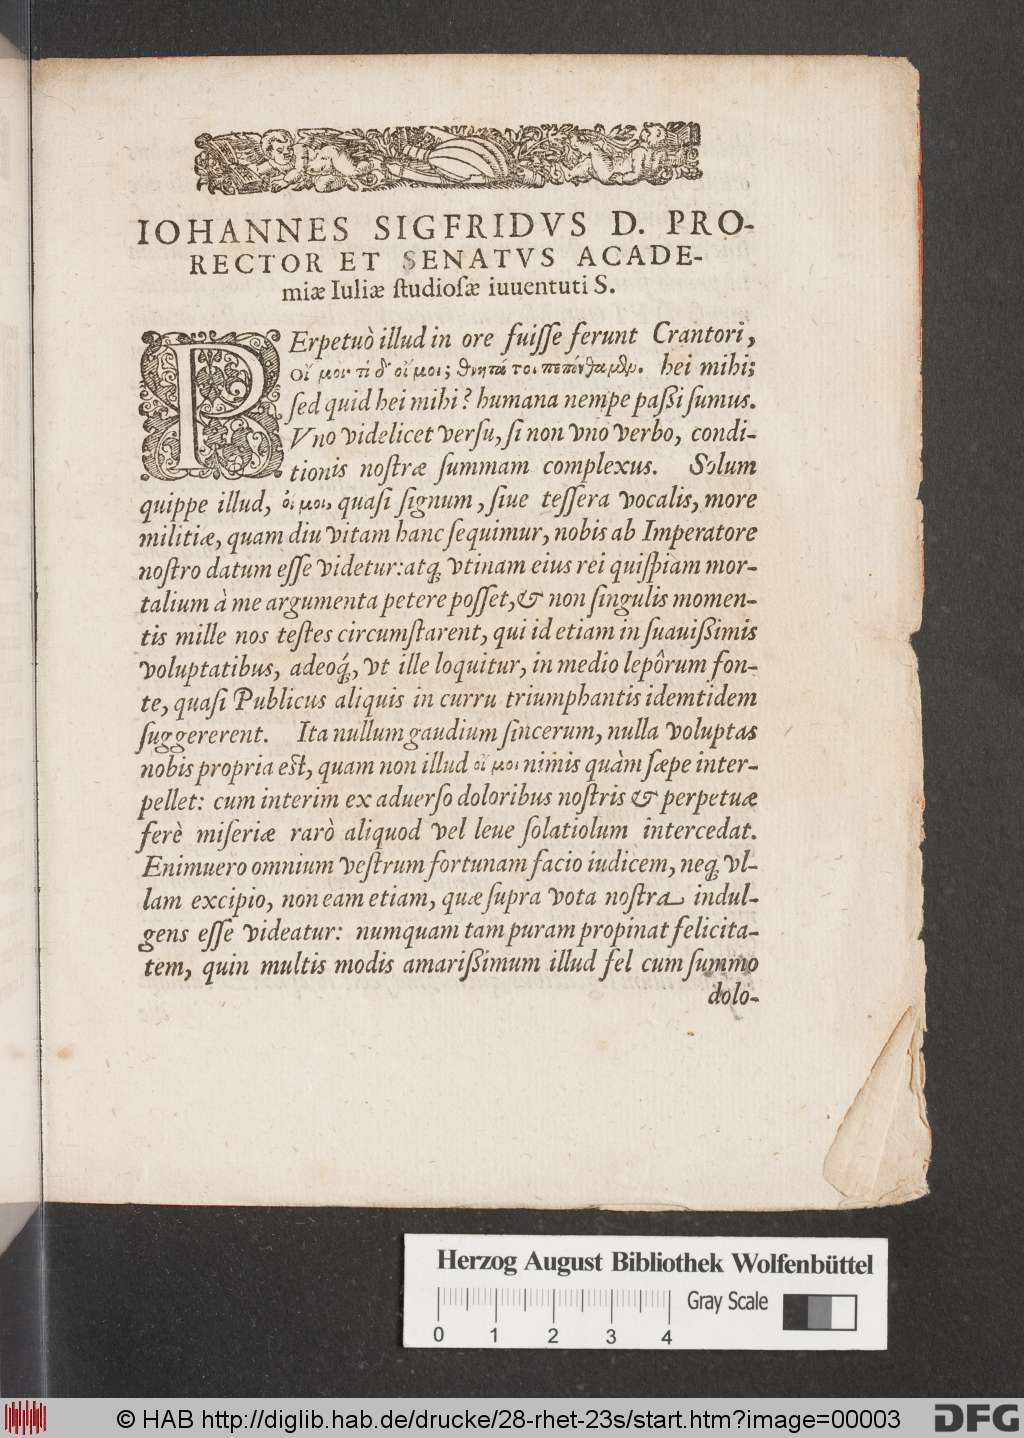 IOHANNES SIGFRIDVS D. PRO-
RECTOR ET SENATVS ACADE-
miæ Iuliæ ſtudioſæ iuuentuti S.
PErpetuò illud in ore fuiſſe ferunt Crantori,
οἴ μοι· τί δ' οἴ μοι; θνητά τοι πεπόνθαμεν. hei mihi;
ſed quid hei mihi? humana nempe paßi ſumus.
Vno videlicet verſu, ſi non vno verbo, condi-
tionis noſtræ ſummam complexus. Solum
quippe illud, οἴ μοι, quaſi ſignum, ſiue teſſera vocalis, more
militiæ, quam diu vitam hanc ſequimur, nobis ab Imperatore
noſtro datum eſſe videtur: atq; vtinam eius rei quiſpiam mor-
talium à me argumenta petere poſſet, & non ſingulis momen-
tis mille nos teſtes circumſtarent, qui id etiam in ſuauißimis
voluptatibus, adeoq́;, vt ille loquitur, in medio lepôrum fon-
te, quaſi Publicus aliquis in curru triumphantis idemtidem
ſuggererent. Ita nullum gaudium ſincerum, nulla voluptas
nobis propria eſt, quam non illud οἴ μοι nimis quàm ſæpe inter-
pellet: cum interim ex aduerſo doloribus noſtris & perpetuæ
ferè miſeriæ rarò aliquod vel leue ſolatiolum intercedat.
Enimuero omnium veſtrum fortunam facio iudicem, neq; vl-
lam excipio, non eam etiam, quæ ſupra vota noſtra indul-
gens eſſe videatur: numquam tam puram propinat felicita-
tem, quin multis modis amarißimum illud fel cum ſummo
dolo-
Herzog August Bibliothek Wolfenbüttel
Gray Scale
0 1 2 3 4
© HAB http://diglib.hab.de/drucke/28-rhet-23s/start.htm?image=00003
DFG